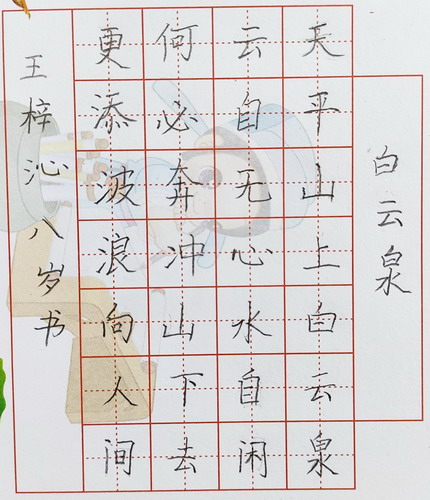 白云泉
天平山上白云泉
云自无心水自闲
何必奔冲山下去
更添波浪向人间
王梓沁八岁书